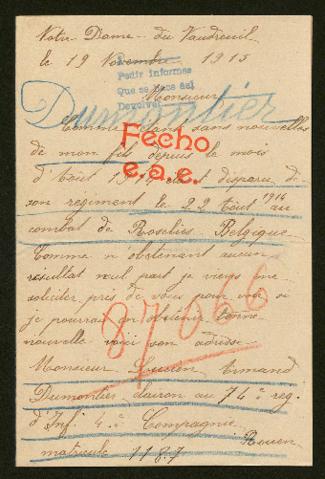 Notre-Dame-du Vaudreuil
le 19 Novembre 1915
Pedir informes
Que se nos así
Devolver
Monsieur
Dumontier
Comme étant sans nouvelles
de mon fils depuis le mois
Fecho
d'Août 1914 et disparu di
e.a.e.
son régiment le 22 Août 1914 au
combat de Roselies Belgique
Comme n'obtenant aucun
résultat null part je viens
soliciter près de vous pour voir si
je pourrai en obtenir bonne
nouvelle voici son adresse
87066
Monsieur Lucien Armand
Dumontier clairon au 74e reg.
d'Inf. 4e Compagnie
Rouen
matricule 1187